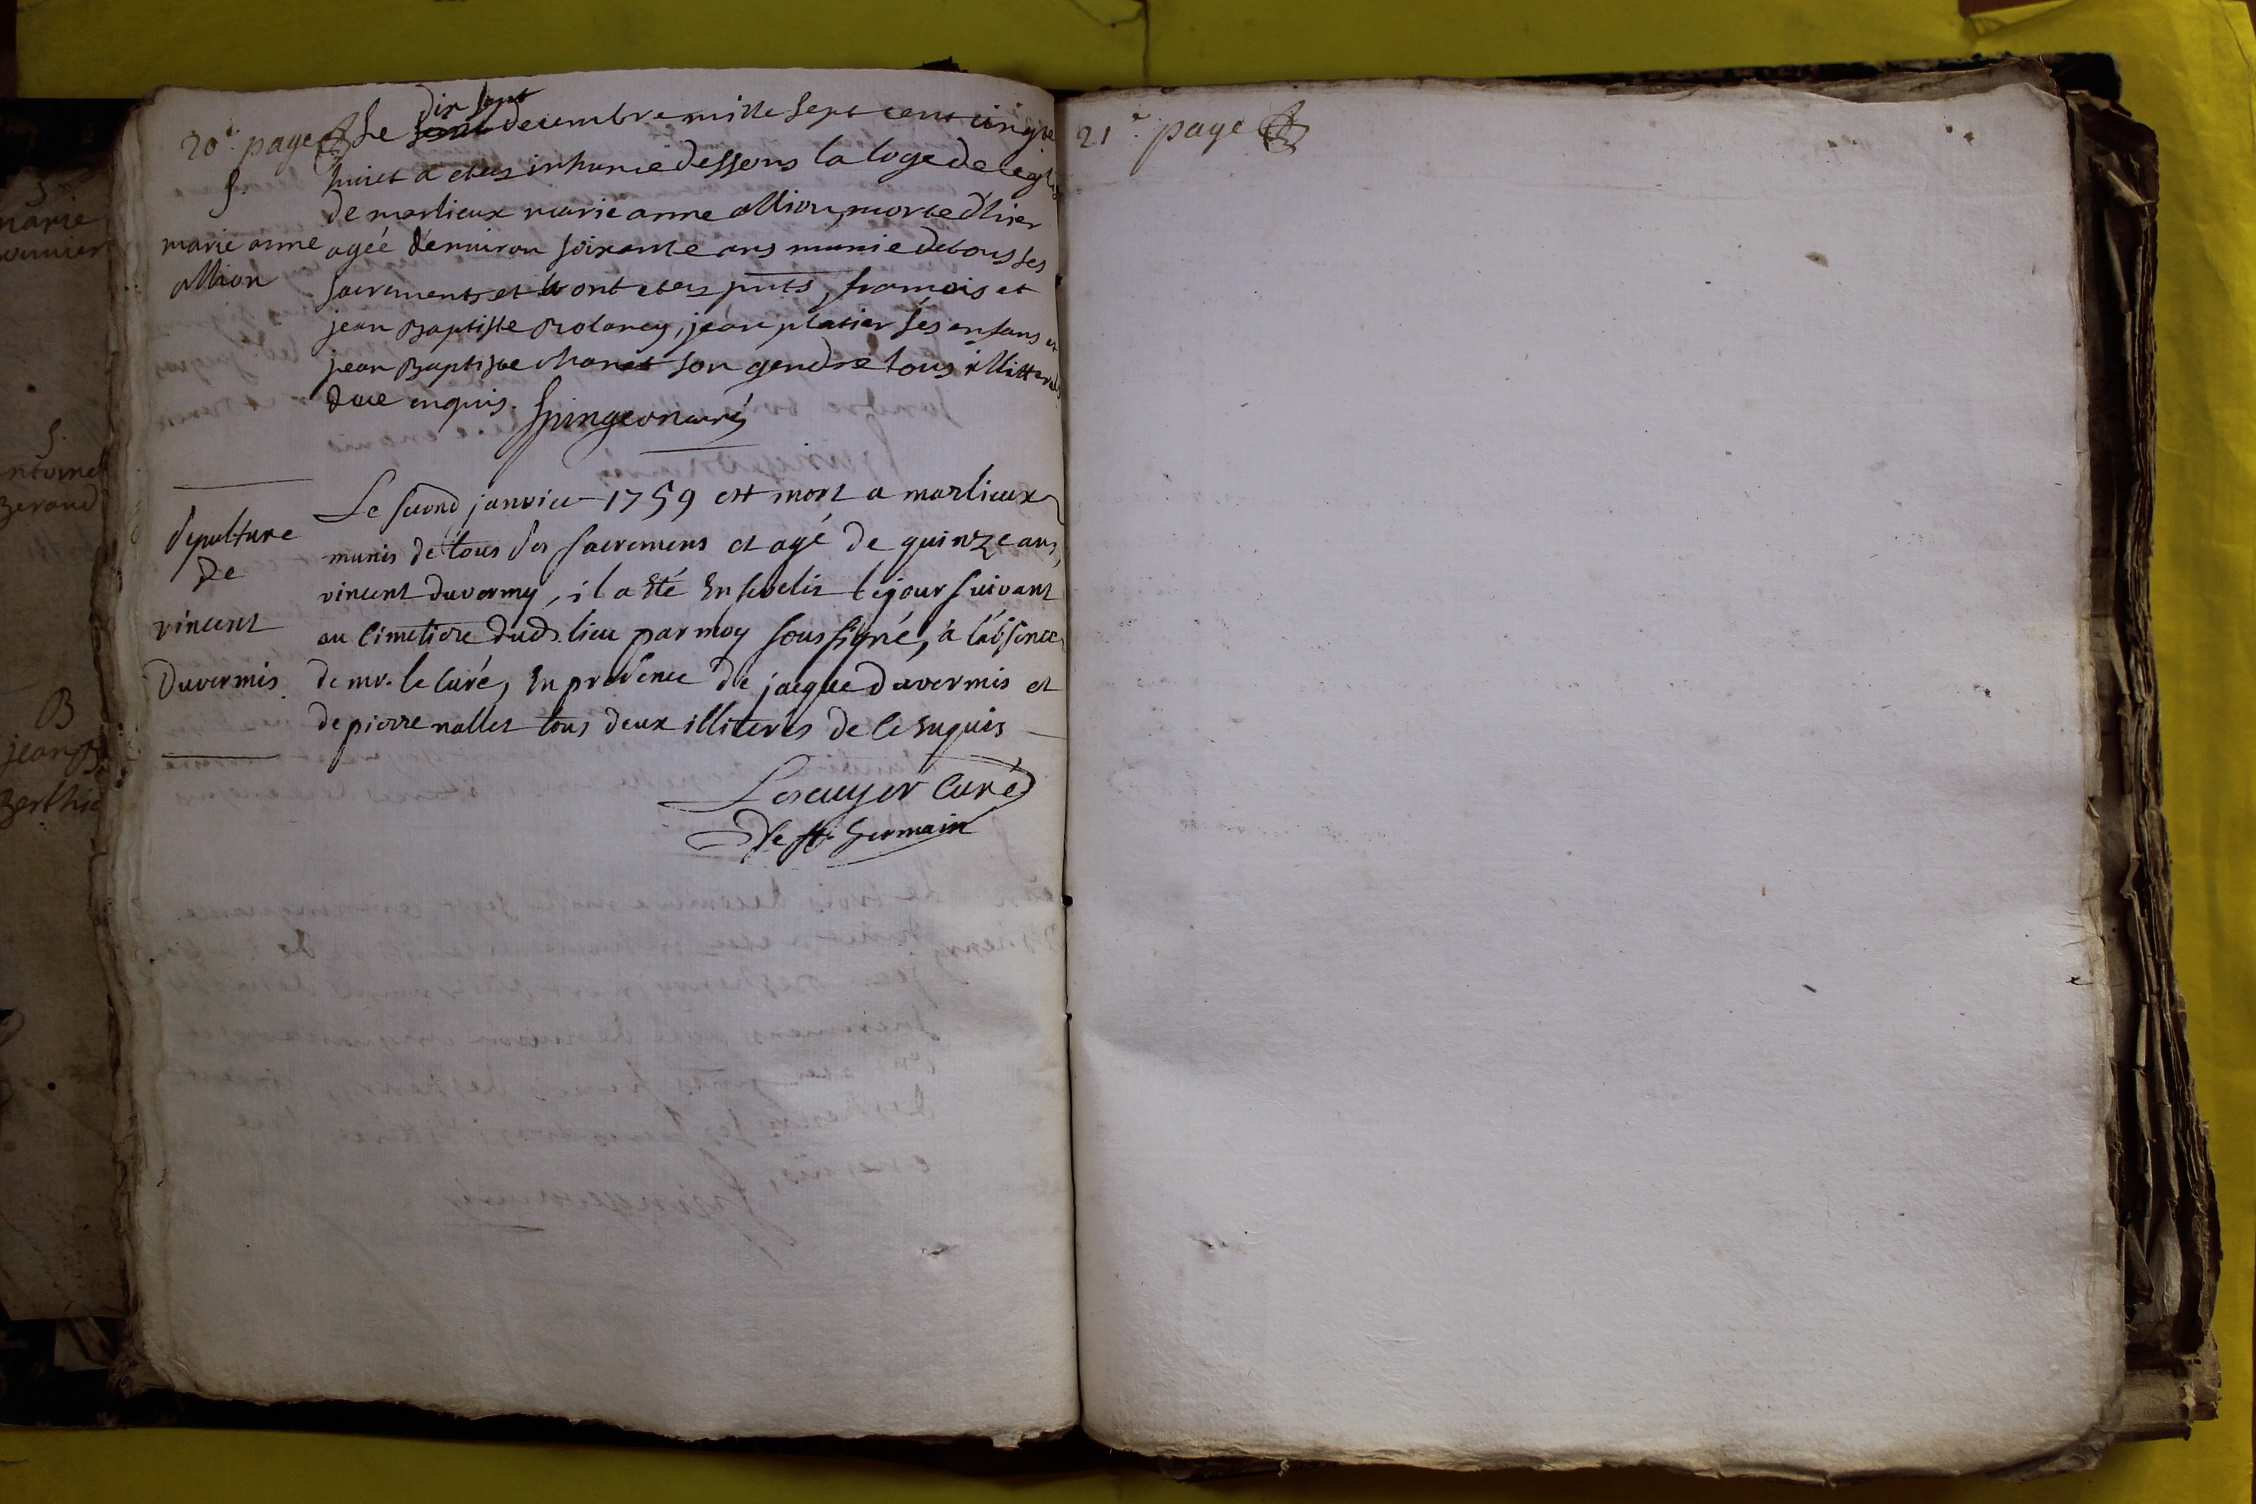 20e page
S.
marie anne
allion
Le dix sept decembre mille sept cent cinq te
huict a etez inhumé dessous la loge de leglise
de marlieux marie anne allion, morte d'hier
agée d'environ soixante ans munie de tous ses
sacrements et ont etez pnts, francois et
jean Baptiste Rolancy, jean platier ses enfans et
jean Baptiste chanet son gendre tous illitterés
de ce enquis. Spingeon curé
Sepulture
De
vincent
Duvermis
Le second janvier 1759 est mort a marlieux
munis de tous ses sacremens et agé de quinze ans,
vincent duvermy, il a été Enseveli le jour suivant
au Cimetiere dud. lieu par moy soussigné, a l'absence
de mr. le Curé, En presence de jacque duvermis et
de pierre nallet tous deux illiterés de ce Enquis
Lescuyer Curé
De st Germain
21e page
marie
S.
B
jean B
Berthie